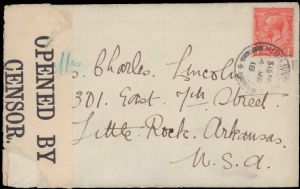 OPENED BY
CENSOR.
s. Charles Lincoln
301. East 7th Street.
Little Rock. Arkansas.
U.S.A.